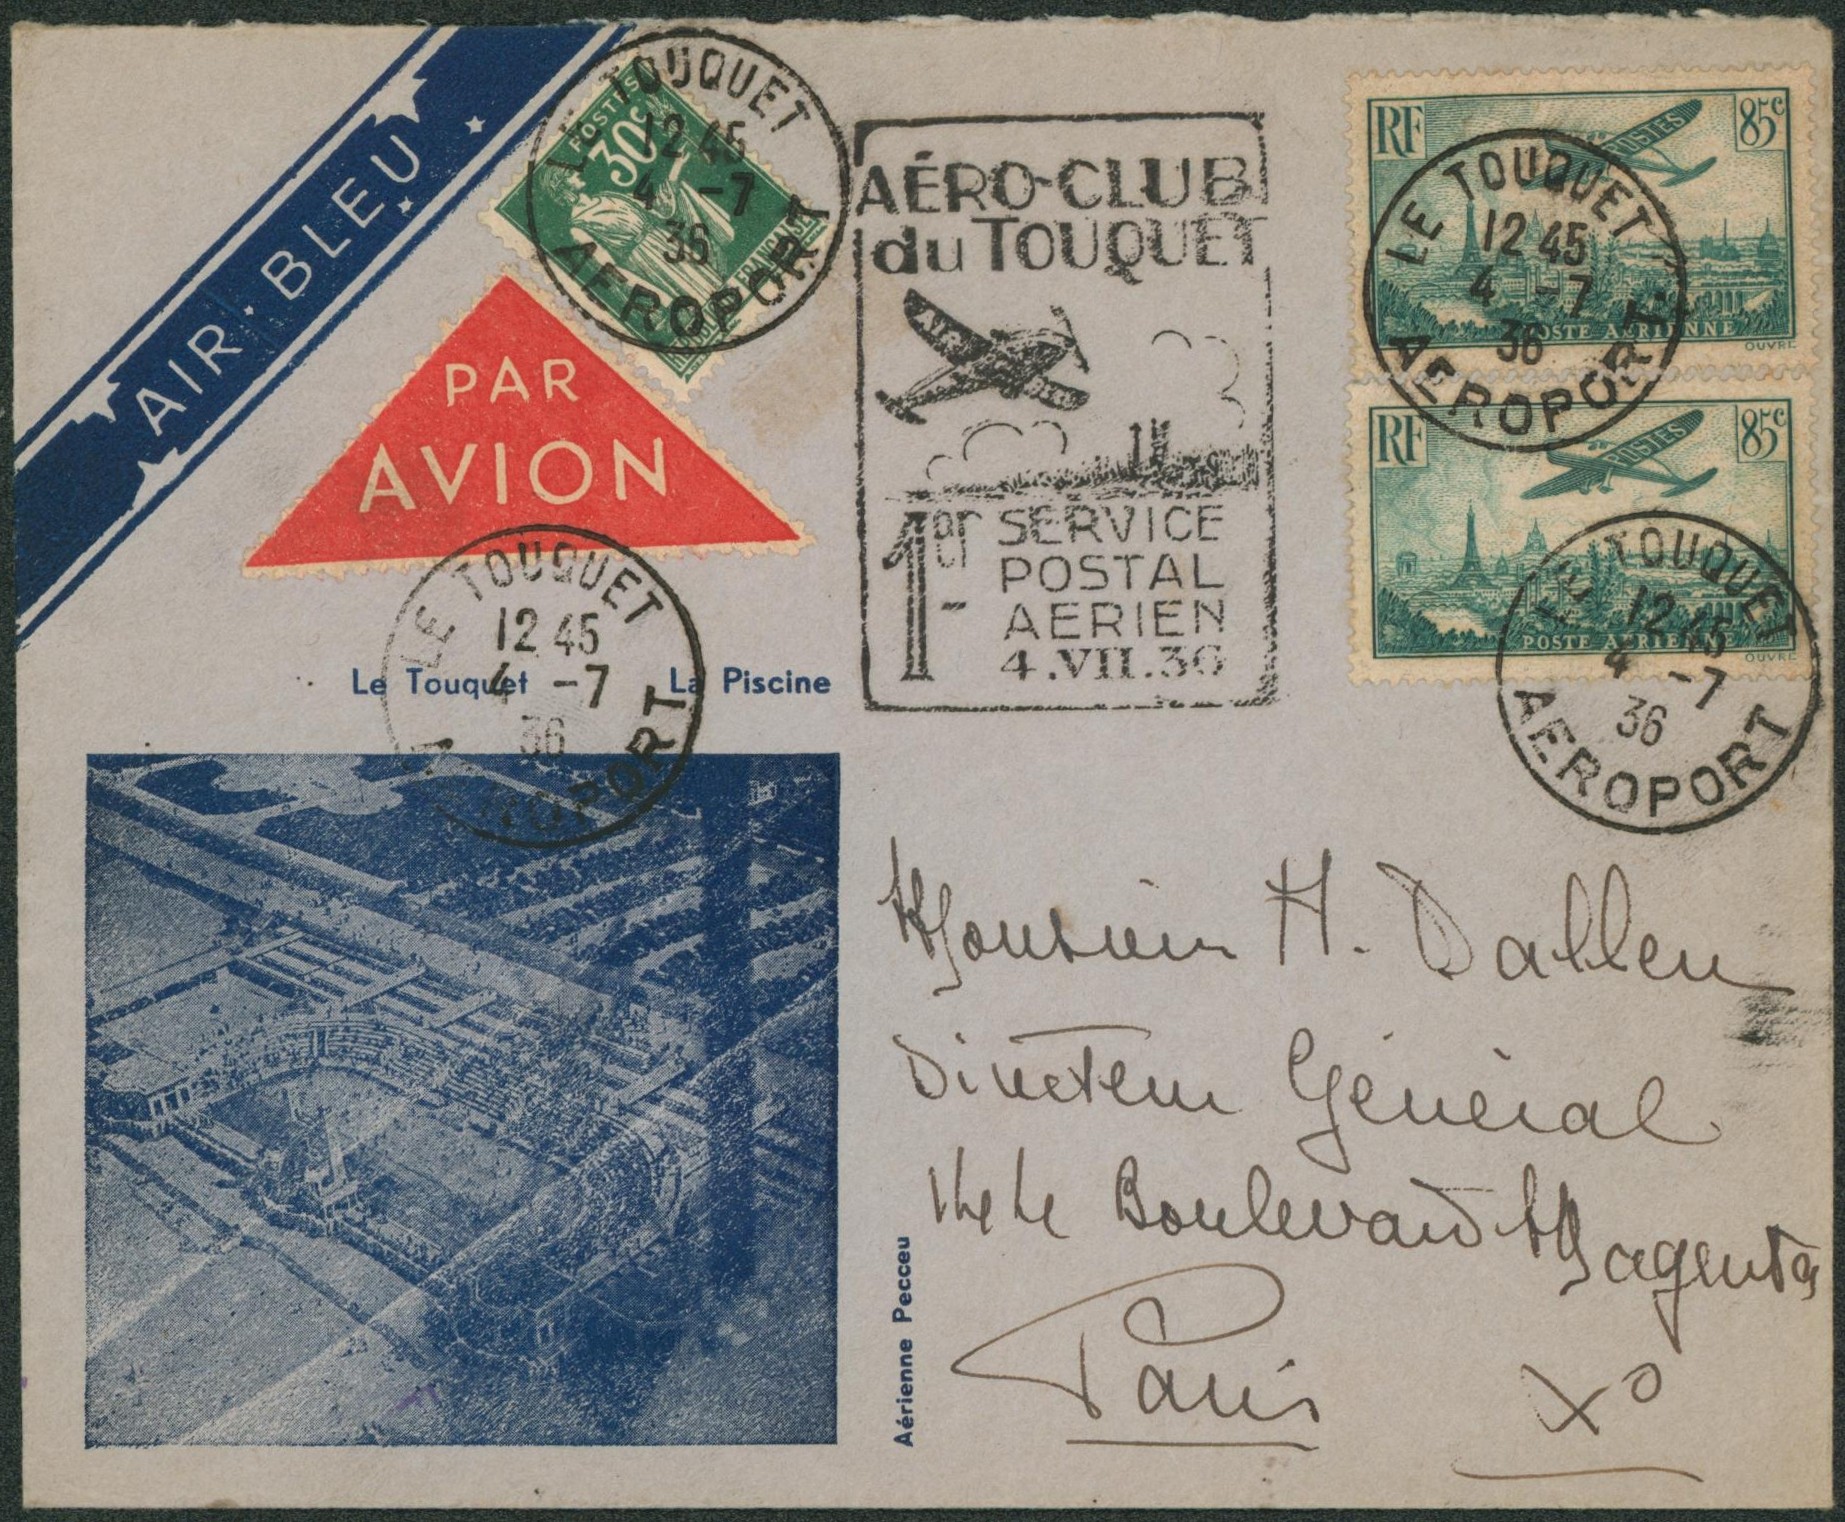 AIR·BLEU
POSTES
30c
RÉPUBLIQUE FRANÇAISE
LE TOUQUET
12 45
4 -7
36
AEROPORT
PAR
AVION
AÉRO-CLUB
du TOUQUET
AIR
BLEU
1er
SERVICE
POSTAL
AERIEN
4.VII.36
RF
POSTES
85c
POSTE AÉRIENNE
OUVRÉ
LE TOUQUET
12 45
4 -7
36
AEROPORT
RF
POSTES
85c
POSTE AÉRIENNE
OUVRÉ
LE TOUQUET
12 45
4 -7
36
AEROPORT
LE TOUQUET
12 45
4 -7
36
AEROPORT
Le Touquet La Piscine
Aérienne Pecceu
Monsieur H. Dalleu
Directeur Général
Boulevard Magenta
Paris
Xº